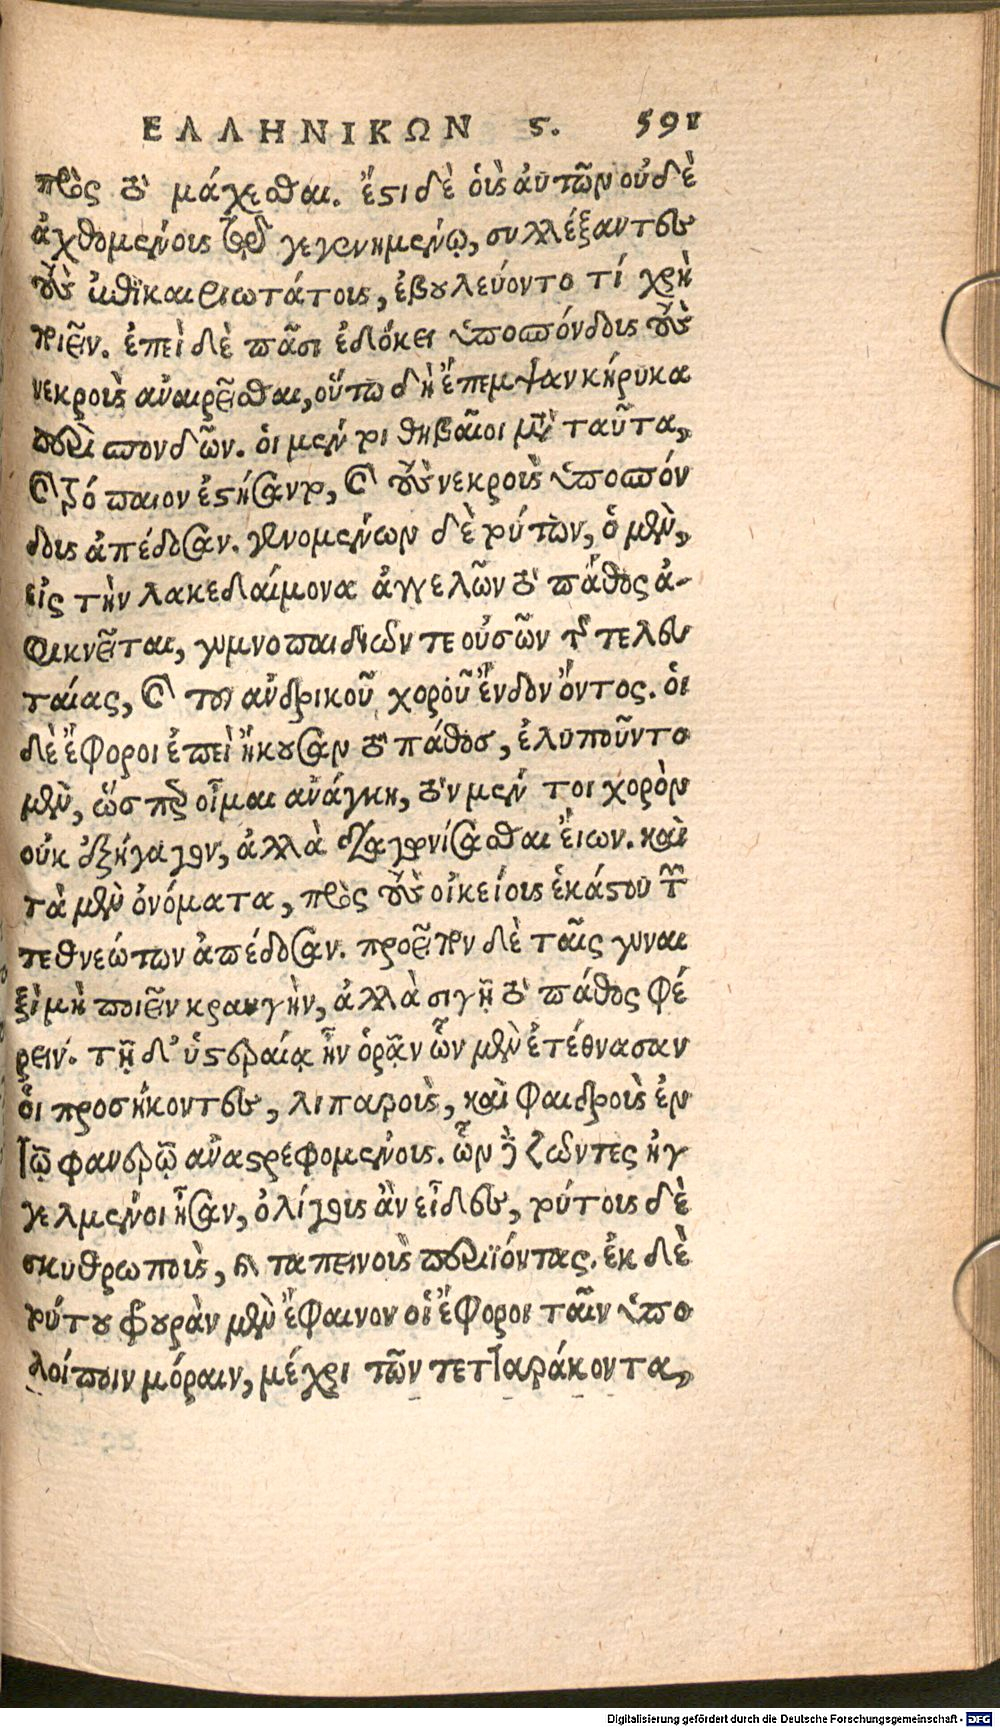 ΕΛΛΗΝΙΚΩΝ ς. 591
πρὸς τὸ μάχεσθαι. ἔστι δὲ οὓς αὐτῶν οὐδὲ
ἀχθομένους τῷ γεγενημένῳ, συλλέξαντες
τοὺς ἐπικαιριωτάτους, ἐβουλεύοντο τί χρὴ
ποιεῖν. ἐπεὶ δὲ πᾶσι ἐδόκει ὑποσπόνδους τοὺς
νεκροὺς ἀναιρεῖσθαι, οὕτω δὴ ἔπεμψαν κήρυκα
περὶ σπονδῶν. οἱ μέν τοι θηβαῖοι μετὰ ταῦτα,
καὶ τρόπαιον ἐστήσαντο, καὶ τοὺς νεκροὺς ὑποσπόν
δους ἀπέδοσαν. γενομένων δὲ τούτων, ὁ μὲν,
εἰς τὴν λακεδαίμονα ἀγγελῶν τὸ πάθος ἀ-
φικνεῖται, γυμνοπαιδιῶν τε οὐσῶν τῆς τελευ
ταίας, καὶ τοῦ ἀνδρικοῦ χοροῦ ἔνδον ὄντος. οἱ
δὲ ἔφοροι ἐπεὶ ἤκουσαν τὸ πάθοσ, ἐλυποῦντο
μὲν, ὥσπερ οἶμαι ἀνάγκη, τὸν μέν τοι χορὸν
οὐκ ἐξήγαγον, ἀλλὰ διαγωνίσασθαι εἴων. καὶ
τὰ μὲν ὀνόματα, πρὸς τοὺς οἰκείους ἑκάστου τῶν
τεθνεώτων ἀπέδοσαν. προεῖπον δὲ ταῖς γυναι
ξὶ μὴ ποιεῖν κραυγὴν, ἀλλὰ σιγῇ τὸ πάθος φέ
ρειν. τῇ δ' ὑστεραίᾳ ἦν ὁρᾷν ὧν μὲν ἐτέθνασαν
οἱ προσήκοντες, λιπαροὺς, καὶ φαιδροὺς ἐν
τῷ φανερῷ ἀναστρεφομένους. ὧν δὲ ζῶντες ἠγ
γελμένοι ἦσαν, ὀλίγους ἂν εἶδες, τούτους δὲ
σκυθρωποὺς, καὶ ταπεινοὺς περιϊόντας. ἐκ δὲ
τούτου φρουρὰν μὲν ἔφαινον οἱ ἔφοροι ταῖν ὑπο
λοίποιν μόραιν, μέχρι τῶν τετταράκοντα,
Digitalisierung gefördert durch die Deutsche Forschungsgemeinschaft - DFG